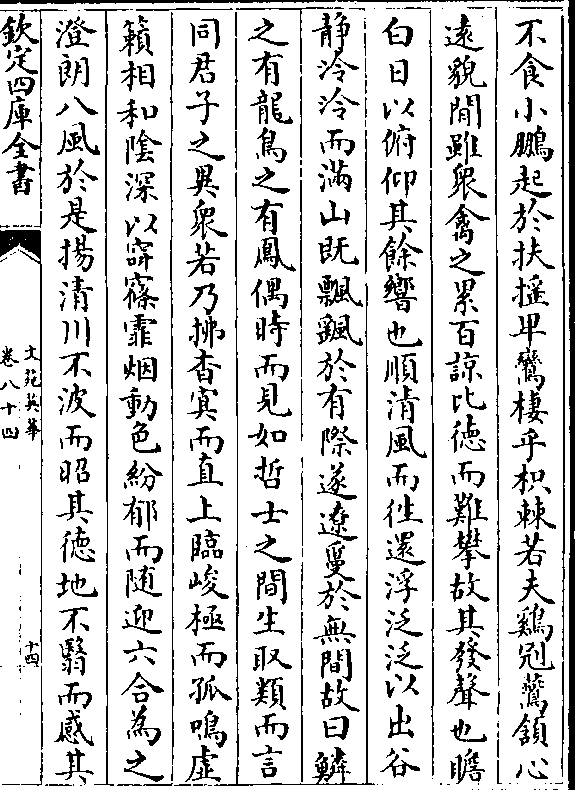 不食小鵬起於扶揺卑鸞棲乎枳棘若夫鷄冠鷰頷心
逺貌閒雖衆禽之累百諒比徳而難攀故其發聲也瞻
白日以俯仰其餘響也順清風而徃還浮泛泛以出谷
静泠泠而滿山既飄颻於有際遂遼敻於無間故曰鱗
之有龍鳥之有鳳偶時而見如哲士之間生取類而言
同君子之異衆若乃拂杳㝠而直上臨峻極而孤鳴虚
籟相和隂深以窲霏烟動色紛郁而随迎六合為之
澄朗八風於是揚清川不波而昭其徳地不翳而感其
欽定四庫全書
文苑英華
卷八十四
十四